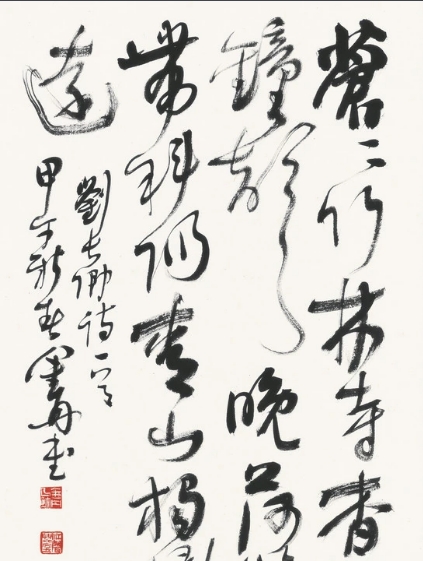 蒼〻竹林寺杳
鐘聲晚荷
帶斜陽青山獨
遠
劉長卿詩一首
甲午新春墨書